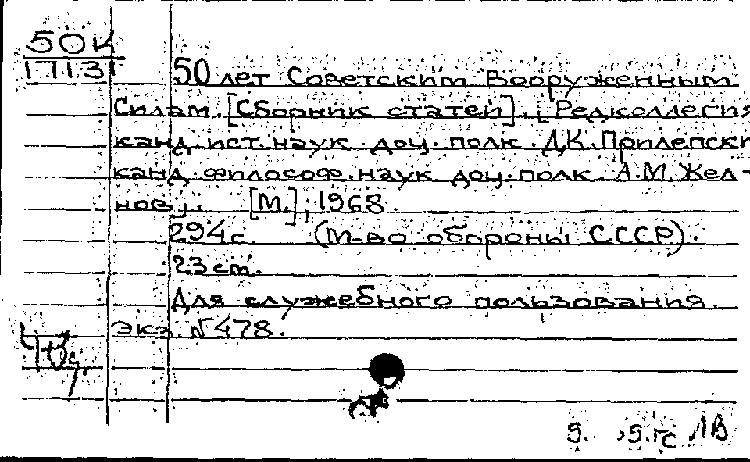 50К
17131
50 лет Советским Вооруженным
Силам. [Сборник статей]. [Редколлегия
канд. ист. наук доц. полк. Д.К. Прилепски
канд. философ. наук доц. полк. А.М. Жел-
нов]. [М.]; 1968.
294с. (М-во обороны СССР).
23 см.
Для служебного пользования.
экз. №478.